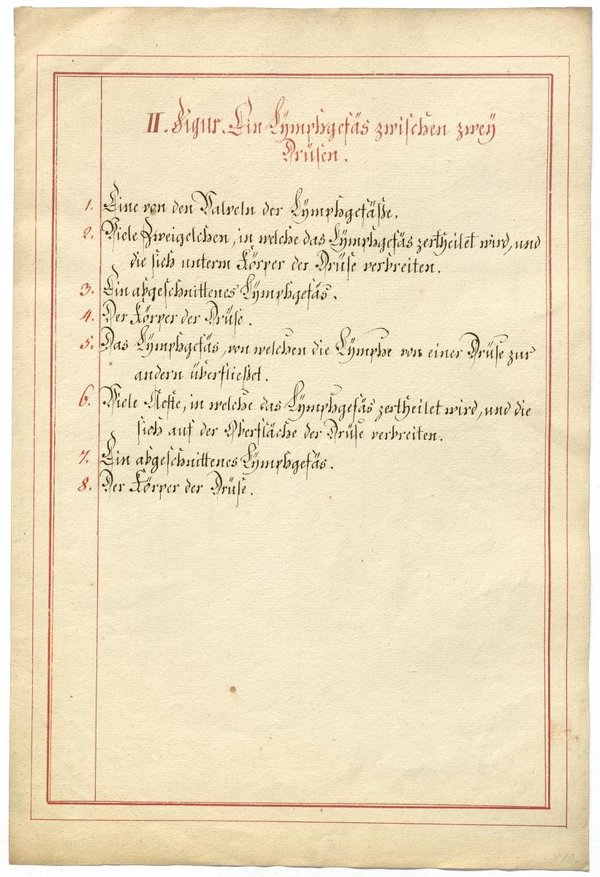 II. Figur. Ein Lÿmphgefäs zwischen zweÿ
Drüsen.
1. Eine von den Valveln der Lÿmphgefäße.
2. Viele Zweigelchen, in welche das Lÿmphgefäs zertheilet wird, und
die sich unterm Körper der Drüse verbreiten.
3. Ein abgeschnittenes Lÿmphgefäs.
4. Der Körper der Drüse.
5. Das Lÿmphgefäs, von welchen die Lÿmphe von einer Drüse zur
andern überfließet.
6. Viele Aeste, in welche das Lÿmphgefäs zertheilet wird, und die
sich auf der Oberfläche der Drüse verbreiten.
7. Ein abgeschnittenes Lÿmphgefäs.
8. Der Körper der Drüse.